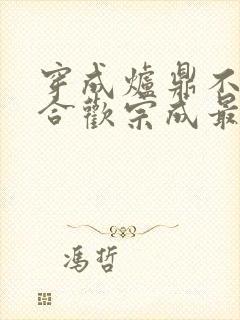 穿成爐鼎不
合歡宗成最
馮哲